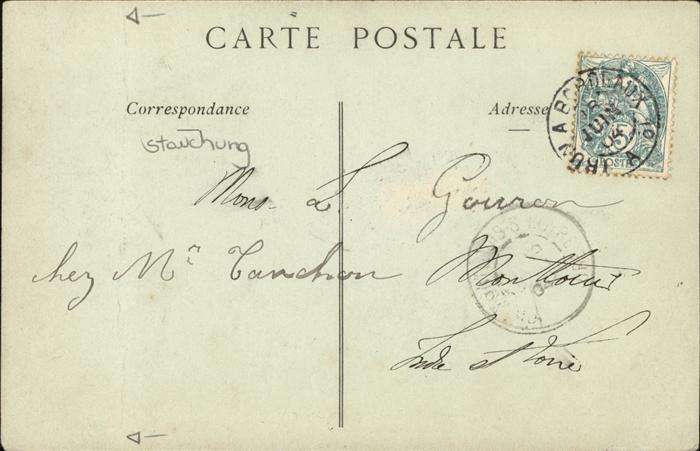 CARTE POSTALE
Correspondance
Adresse
Stauchung
IRUN A BORDEAUX
JUIN
POSTES
Mons. L. Gouron
chez Mr Tanchon Montlouis
Indre et Loire